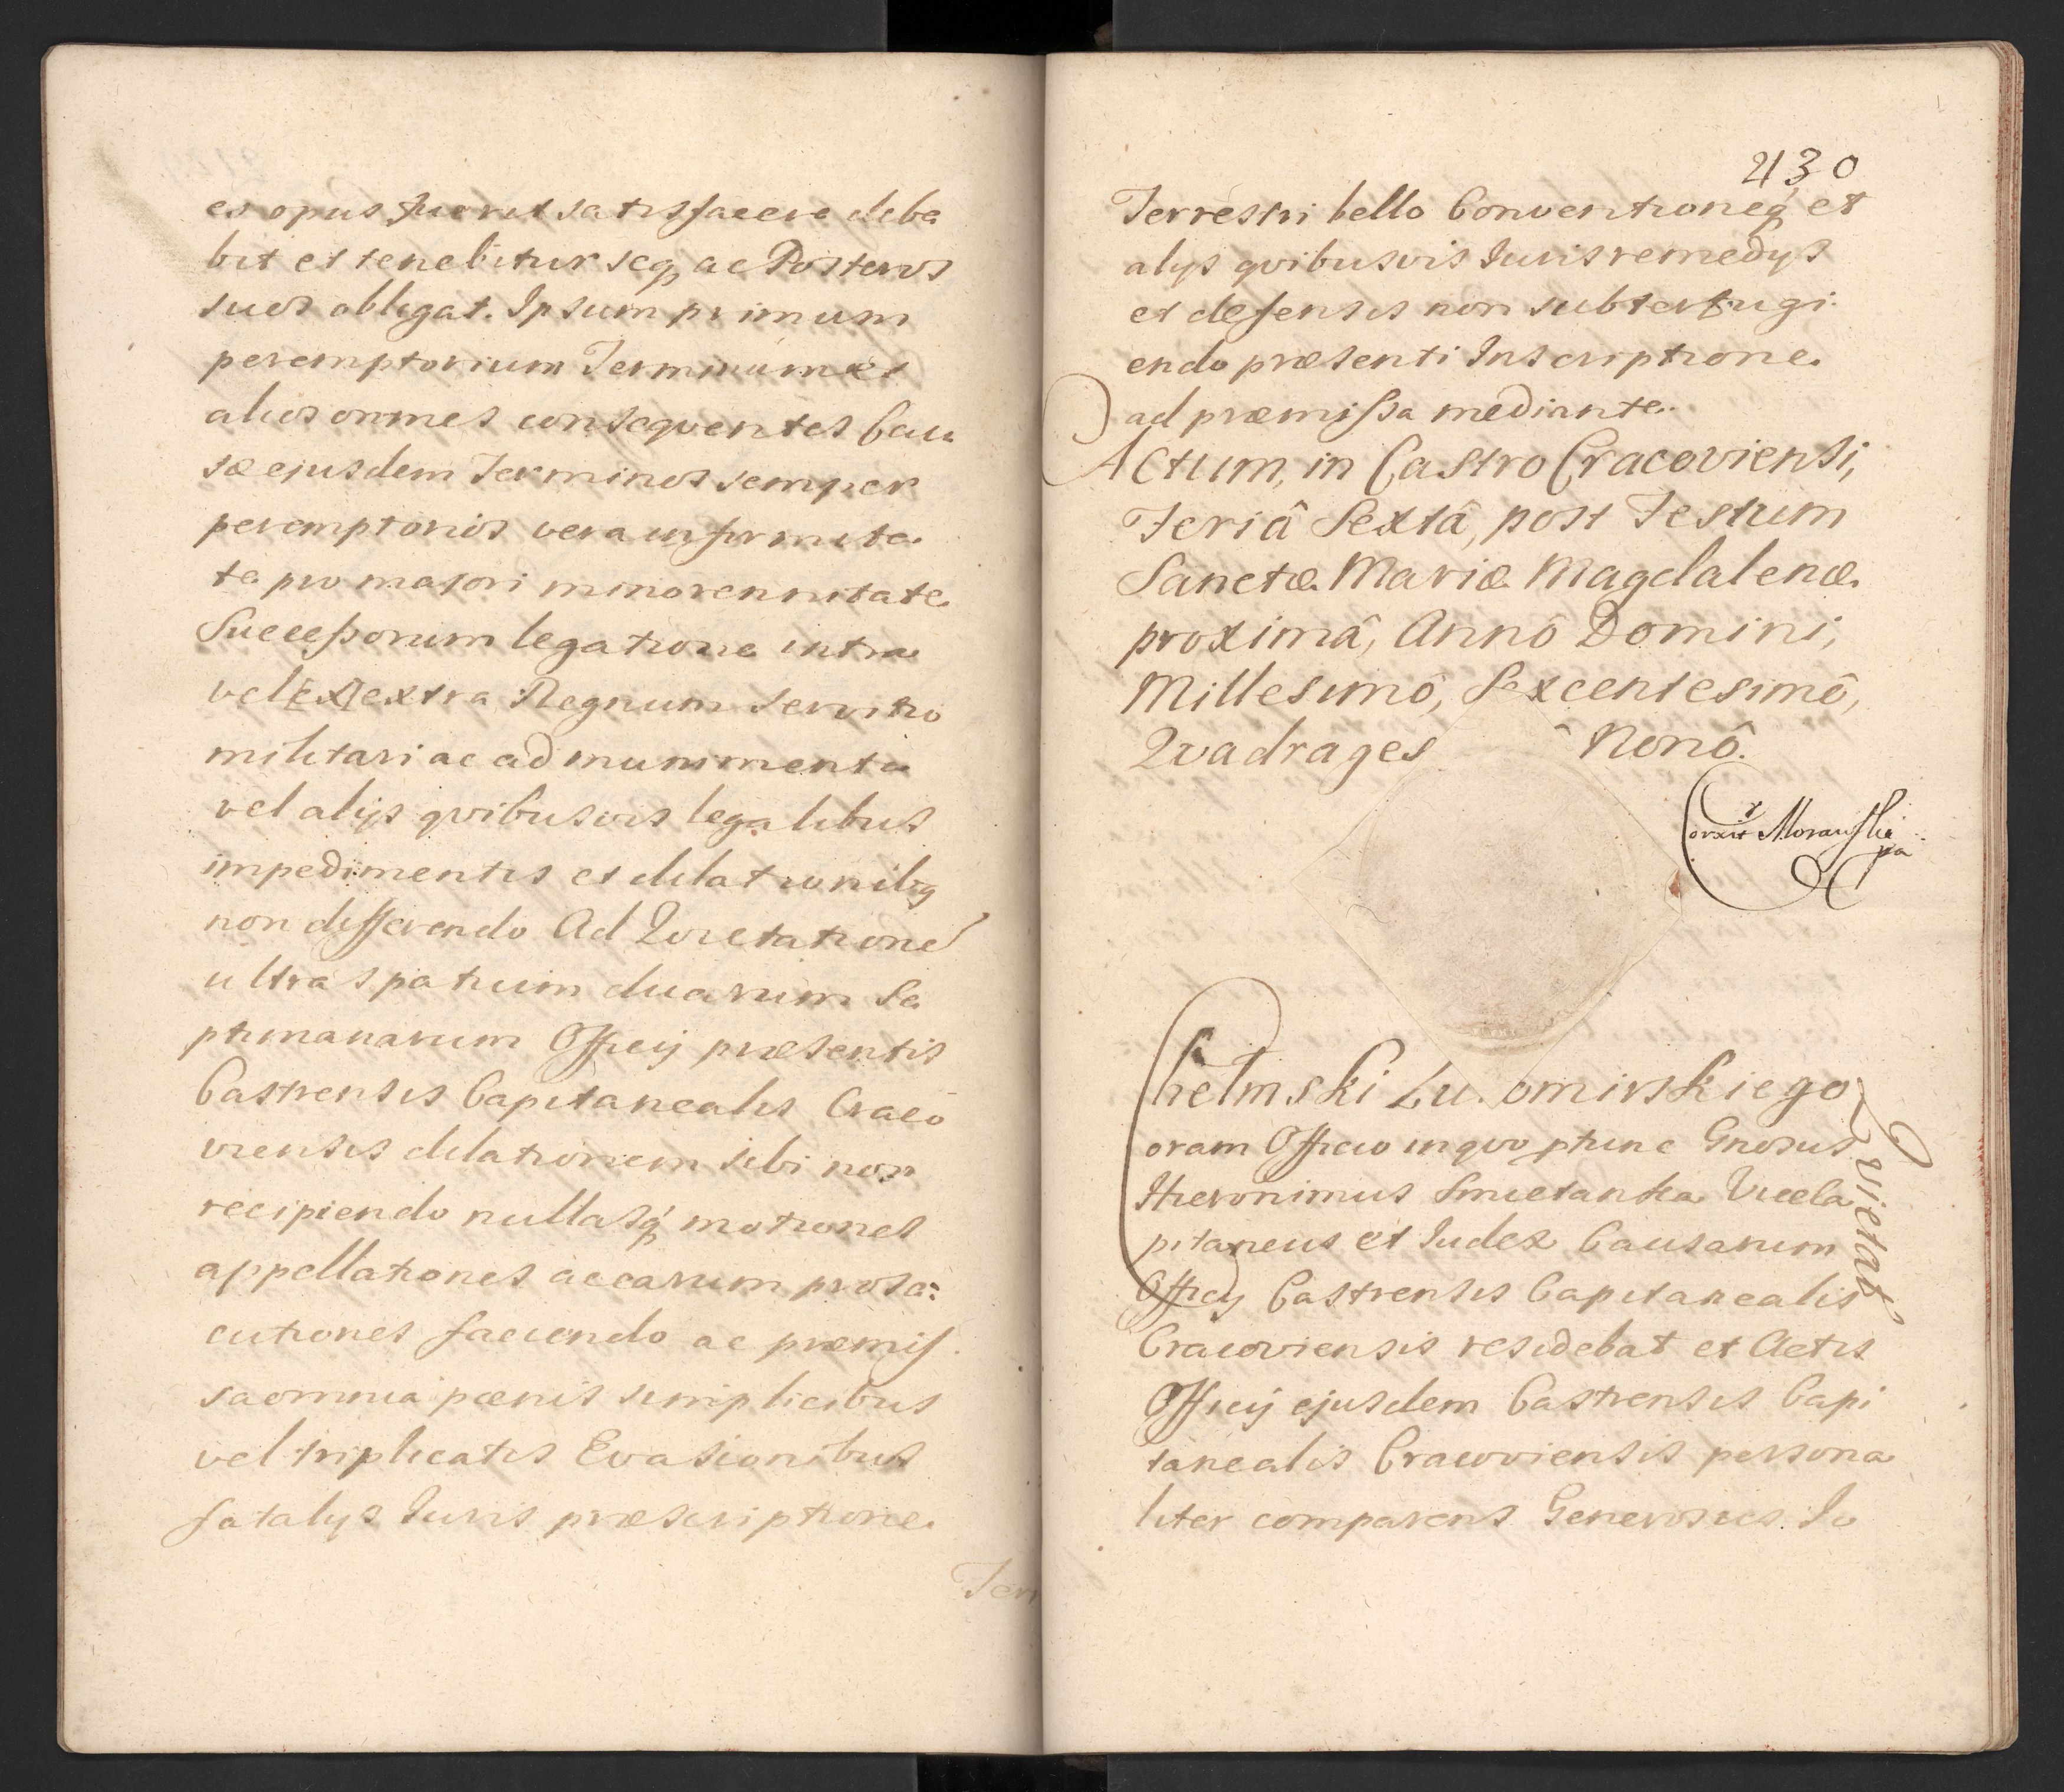 es opus fuerit satisfacere debe
bit et tenebitur seq, ac Posteros
suos obligat. Ipsum primum
peremptorium Terminum et
alios omnes conseqventes Cau
sæ ejusdem Terminos semper
peremptorios vera infirmita
te pro majori minorennitate
Sucessorum legatione intra
vel [ex] extra Regnum servitio
militari ac ad munimenta
vel alijs qvibusvis legalibus
impedimentis et dilationibq
non differendo Ad Qvietatione
ultra spatium duarum Se
ptimanarum Officij præsentis
Castrensis Capitanealis Craco
viensis dilationem sibi non
recipiendo nullasq motiones
appellationes ac earum prose:
cutiones faciendo ac præmis
sa omnia pœnis simplicibus
vel triplicatis Evasionibus
fatalijs Iuris præscriptione
Ter
430
Terrestri bello Conventioneq et
alijs qvibusvis Iuris remedijs
et defensis non subterfugi
endo præsenti Inscriptione
ad præmissa mediante.
Actum, in Castro Cracoviensi,
Feriâ Sextâ, post Festum
Sanctæ Mariæ Magdalenæ
proximâ, Annô Domini,
Millesimô, Sexcentesimô,
Qvadrages Nonô.
Corxit Morawski
Chelmski Lu omirskiego
Qvietat
oram Officio in qvo ptunc Gnosus
Hieronimus Smietanka Viceca
pitaneus et Iudex Causarum
Officij Castrensis Capitanealis
Cracoviensis residebat et Actis
Officij ejusdem Castrensis Capi
tanealis Cracoviensis persona
liter comparens Generosus Io